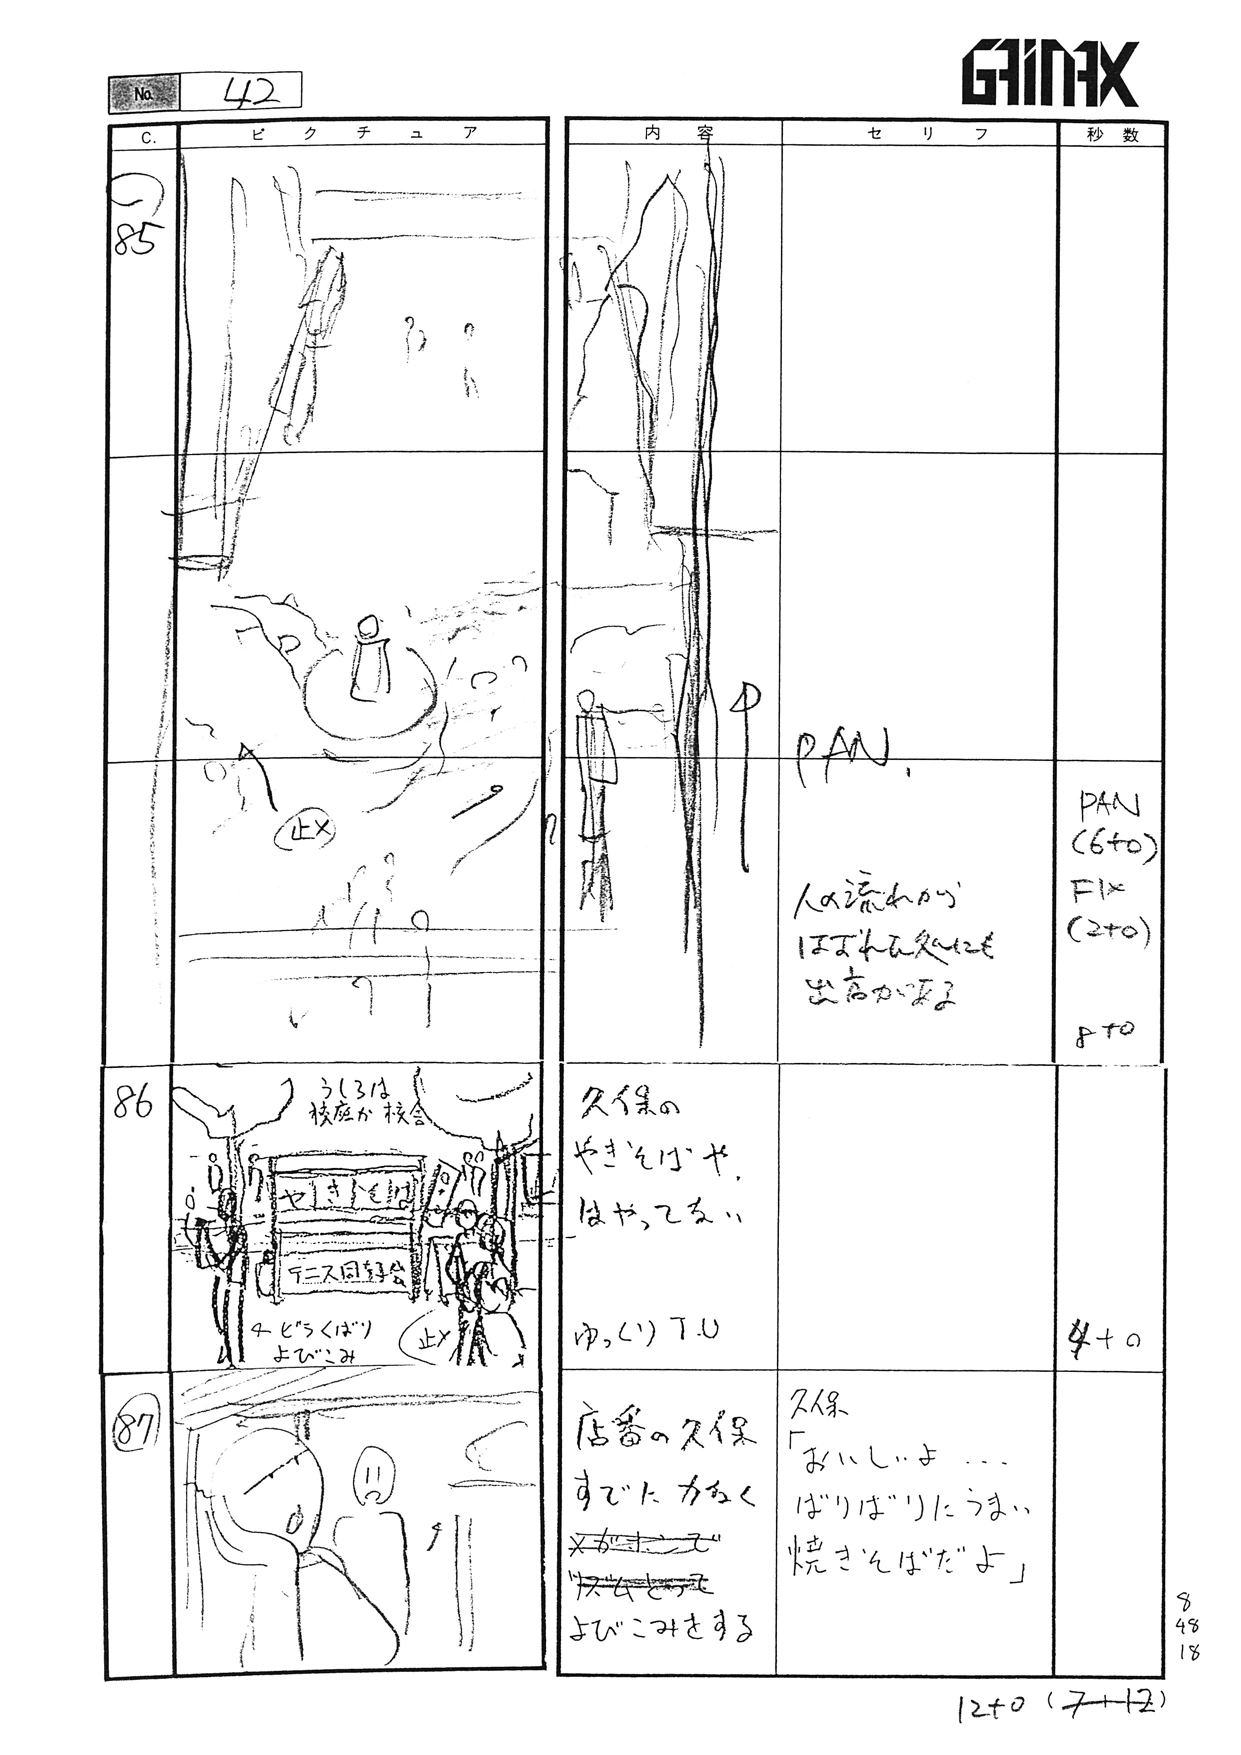 GAINAX
No. 42
C. ピクチュア 内容 セリフ 秒数
85
止メ
PAN.
人の流れから
はずれた処にも
出店がある
PAN
(6+0)
FIX
(2+0)
8+0
86
うしろは
校庭か校舎
やきそば
テニス同好会
←ビラくばり
よびこみ
止メ
久保の
やきそばや.
はやってない
ゆっくりT.U
4+0
87
店番の久保
すでに力なく
メガホンで
リズムとって
よびこみをする
久保
「おいしいよ...
ばりばりにうまい
焼きそばだよ」
8
48
18
12+0 (7+12)